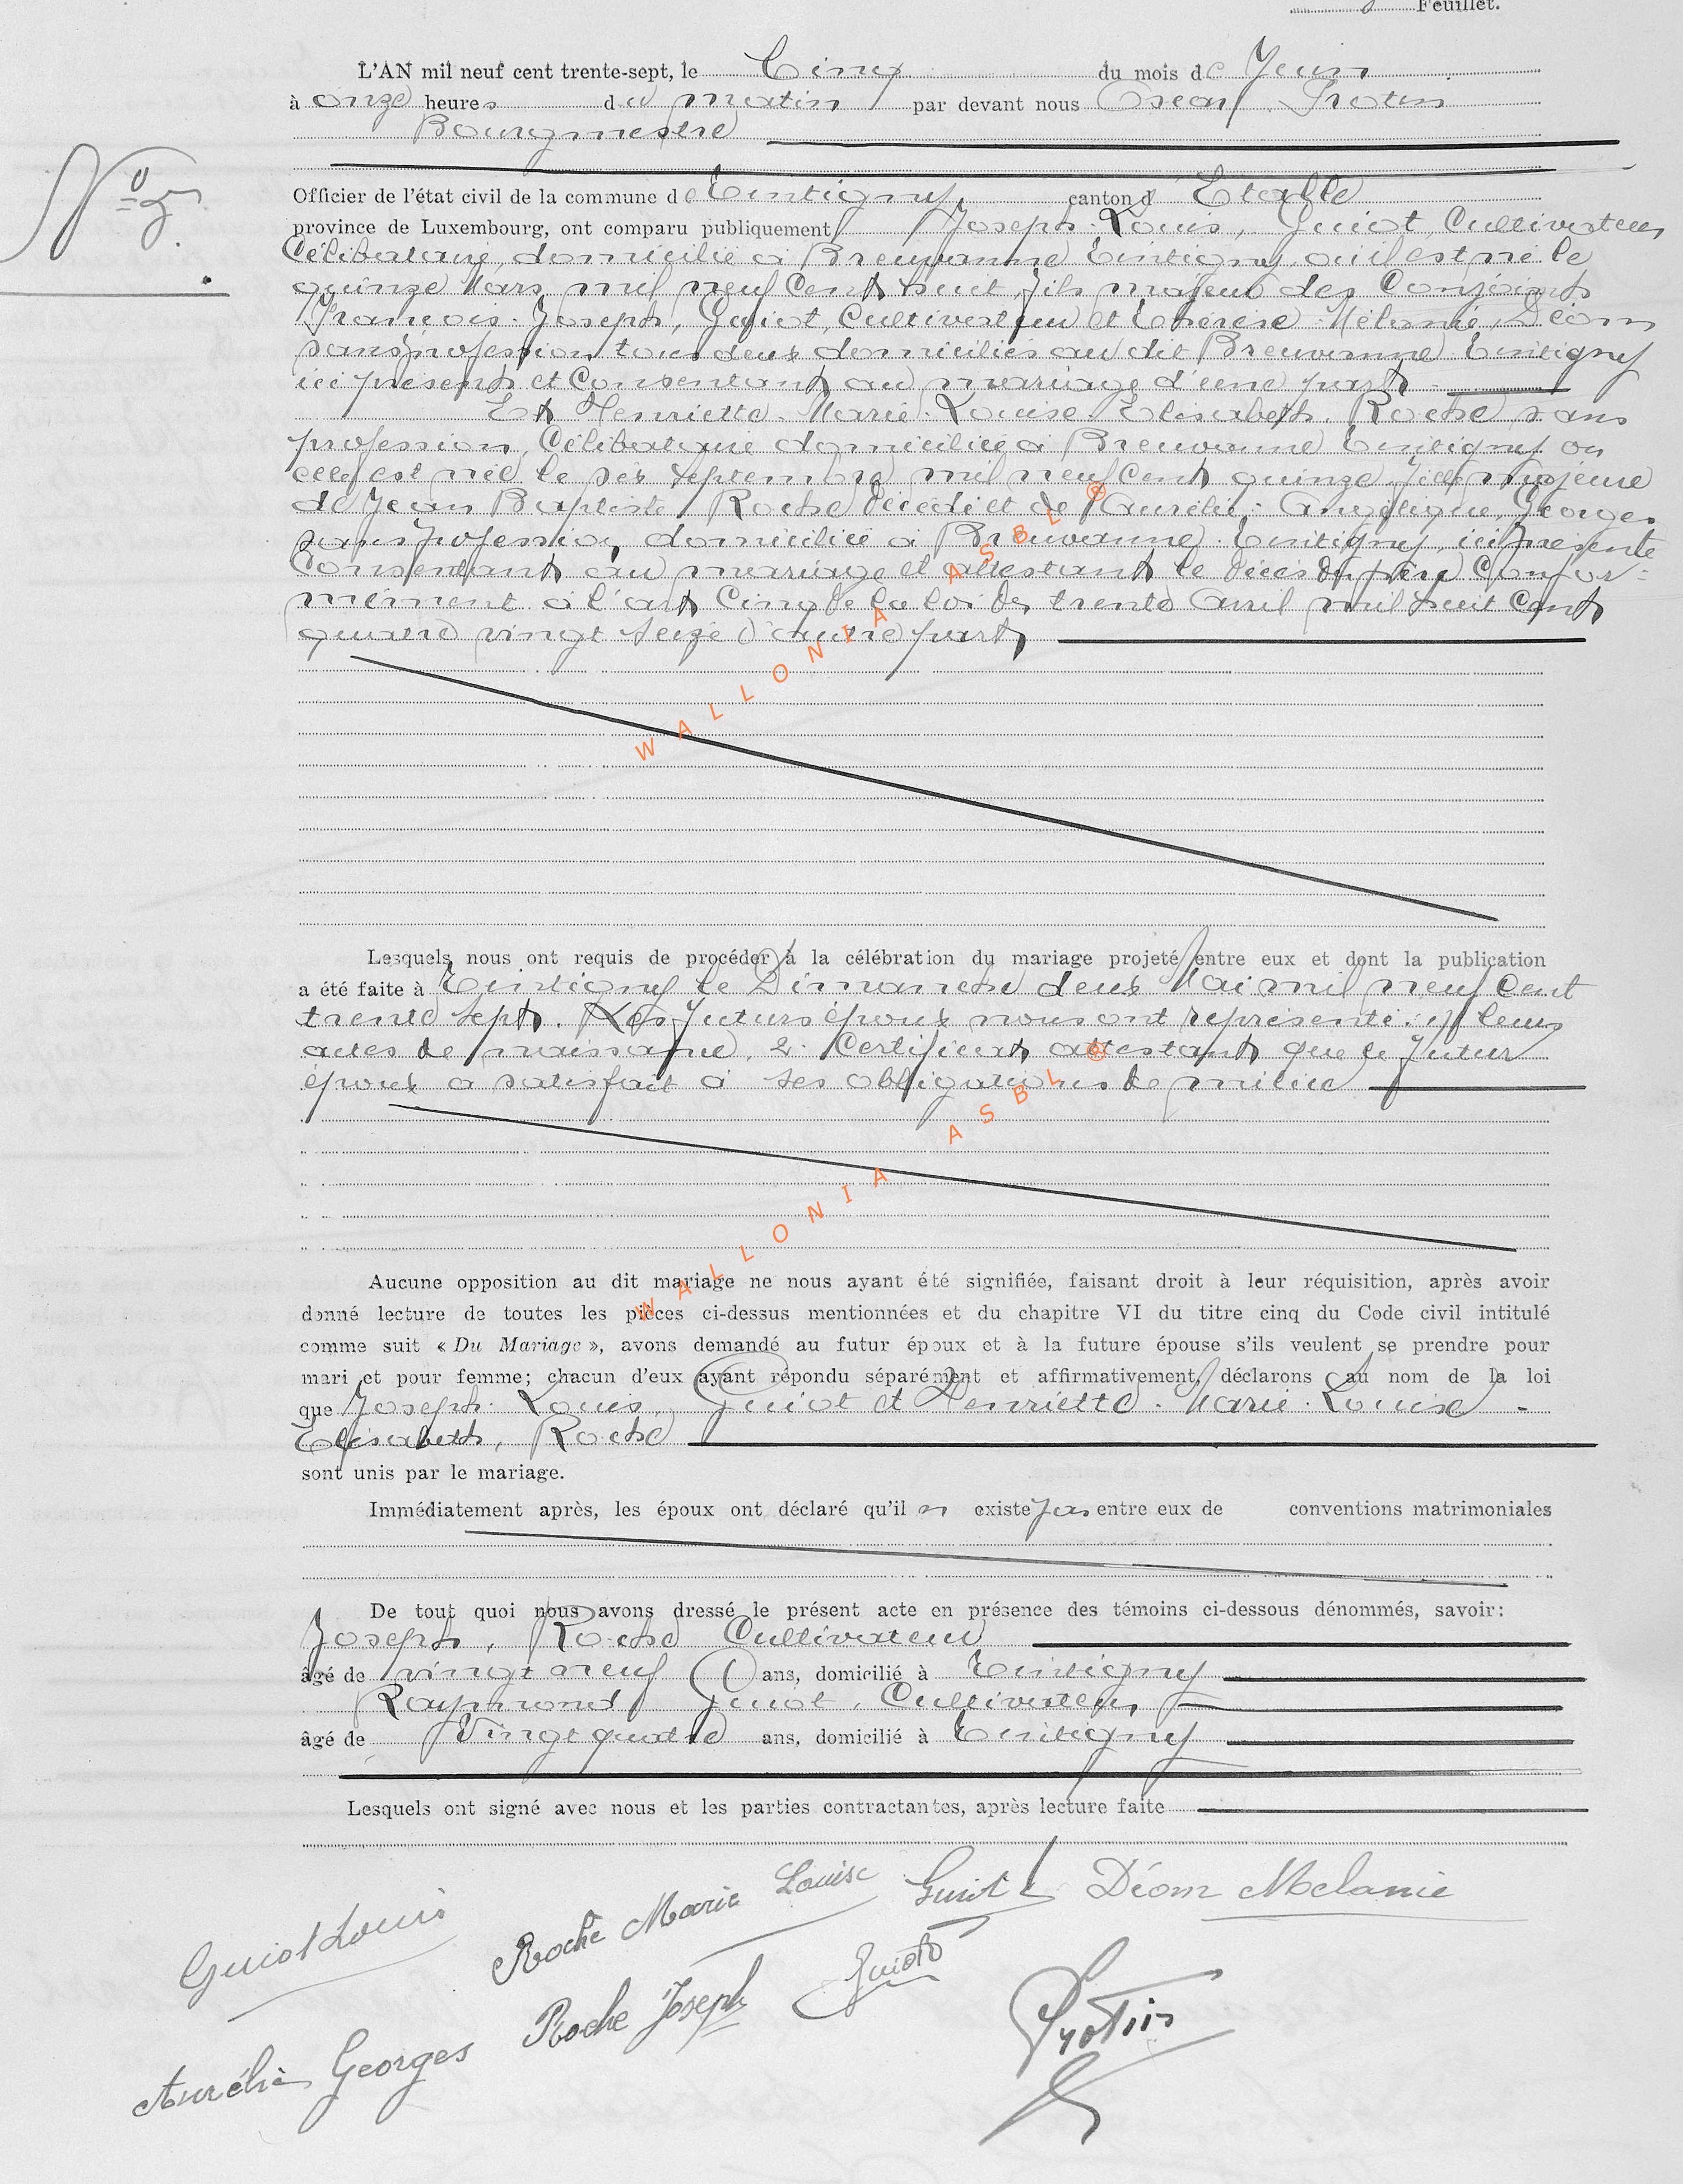 Feuillet.
L'AN mil neuf cent trente-sept, le Cinq du mois de Juin
à onze heures du matin par devant nous Oscar Protin
Bourgmestre
N° 5.
Officier de l'état civil de la commune de Tintigny canton d'Etalle
province de Luxembourg, ont comparu publiquement Joseph-Louis, Guiot, Cultivateur
Célibataire, domicilié à Breuvanne Tintigny où il est né le
quinze Mars mil neuf Cent huit, fils majeur des Conjoints
François-Joseph, Guiot, Cultivateur et Thérèse-Mélanie, Déom
sans profession tous deux domiciliés au dit Breuvanne Tintigny
ici présents et Consentant au mariage d'une part
Et Henriette-Marie-Louise-Elisabeth, Roche sans
profession, Célibataire domiciliée à Breuvanne Tintigny où
elle est née le six Septembre mil neuf Cent quinze fille majeure
de Jean Baptiste Roche décédé et de Aurélie-Angélique, Georges
sans profession, domiciliée à Breuvanne-Tintigny, ici présente
Consentant au mariage et attestant le décès du père Confor=
mément à l'art Cinq de la loi du trente Avril mil huit Cent
quatre vingt seize d'autre part
WALLONIA ASBL ®
Lesquels nous ont requis de procéder à la célébration du mariage projeté entre eux et dont la publication
a été faite à Tintigny le Dimanche deux Mai mil neuf Cent
trente sept. Les futurs époux nous ont représenté: 1° leurs
actes de naissance, 2° Certificat attestant que le futur
époux a satisfait à ses obligations de milice
WALLONIA ASBL ®
Aucune opposition au dit mariage ne nous ayant été signifiée, faisant droit à leur réquisition, après avoir
donné lecture de toutes les pièces ci-dessus mentionnées et du chapitre VI du titre cinq du Code civil intitulé
comme suit « Du Mariage », avons demandé au futur époux et à la future épouse s'ils veulent se prendre pour
mari et pour femme; chacun d'eux ayant répondu séparément et affirmativement, déclarons au nom de la loi
que Joseph-Louis, Guiot et Henriette-Marie-Louise-
Elisabeth, Roche
sont unis par le mariage.
Immédiatement après, les époux ont déclaré qu'il n existe pas entre eux de conventions matrimoniales
De tout quoi nous avons dressé le présent acte en présence des témoins ci-dessous dénommés, savoir:
Joseph, Roche Cultivateur
âgé de vingt neuf ans, domicilié à Tintigny
Raymond Guiot, Cultivateur
âgé de Vingt quatre ans, domicilié à Tintigny
Lesquels ont signé avec nous et les parties contractantes, après lecture faite
Guiot Louis Roche Marie Louise Guiot Déom Mélanie
Aurélie Georges Roche Joseph Guiot Protin